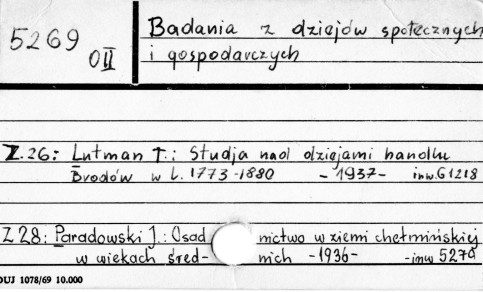 5269
OII
Badania z dziejów społecznych
i gospodarczych
Z.26: Lutman T.: Studja nad dziejami handlu
Brodów w L. 1773-1880 - 1937 - inw. 61218
Z 28: Paradowski J.: Osadnictwo w ziemi chełmińskiej
w wiekach średnich - 1936 - - inw 5279
DUJ 1078/69 10.000